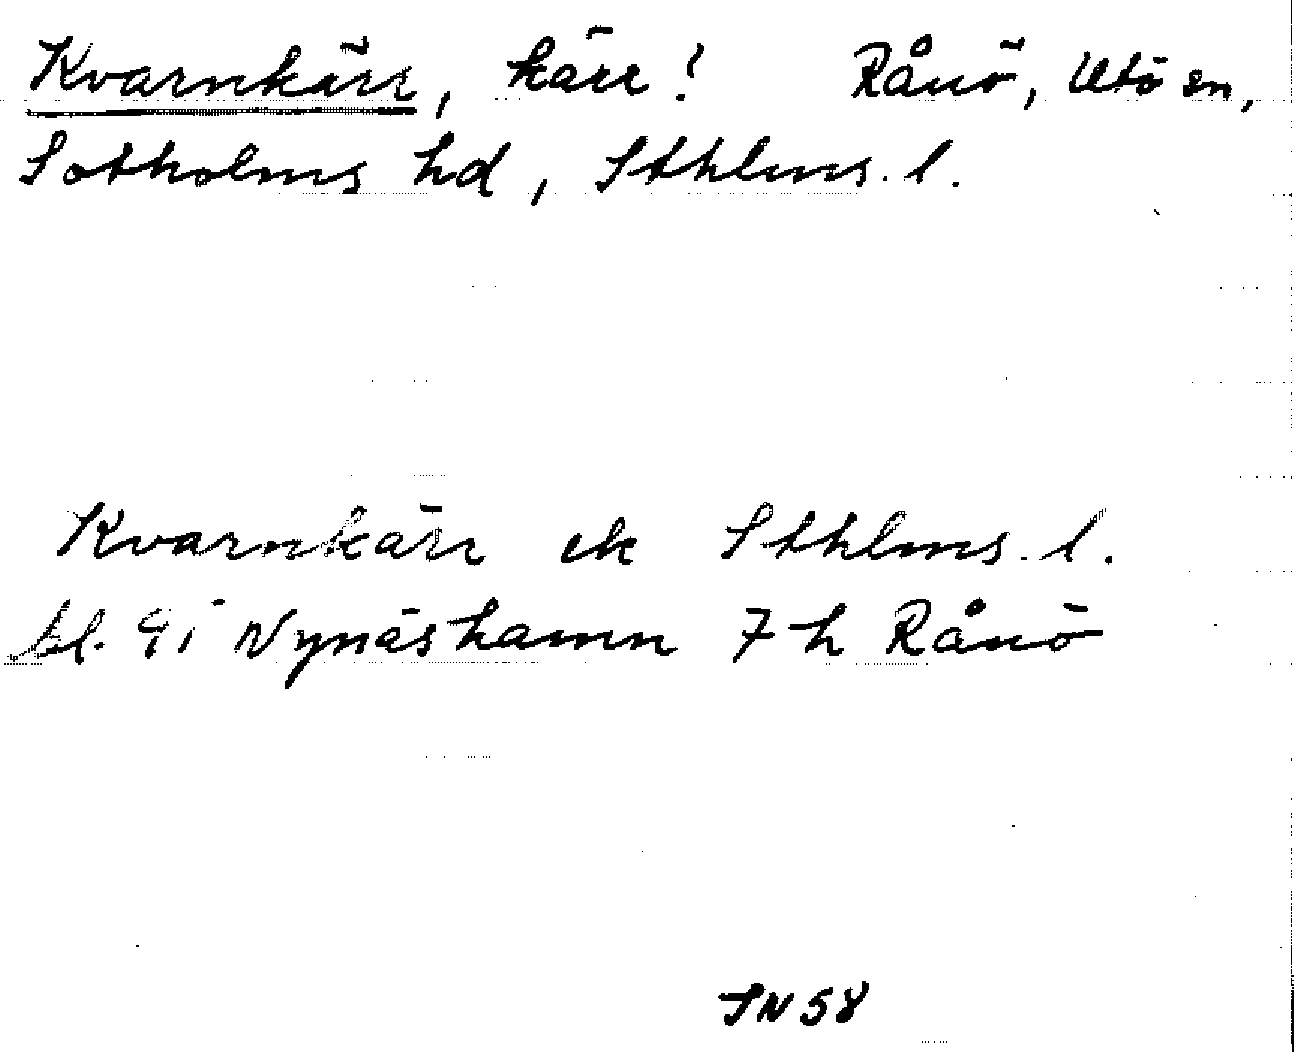 Kvarnkärr, kärr! Rånö, Utö sn,
Sotholms hd, Sthlms. l.
Kvarnkärr ek Sthlms. l.
bl. 9i Nynäshamn 7h Rånö
SN 58